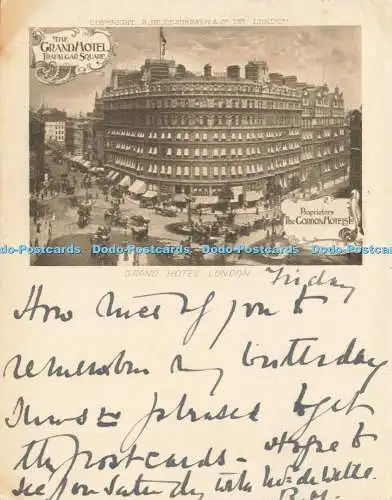 COPYRIGHT. S. HILDESHEIMER & CO. LTD. LONDON
THE
GRAND HOTEL
TRAFALGAR SQUARE
Proprietors
THE GORDON HOTELS LD
Dodo-Postcards Dodo-Postcards Dodo-Postcards Dodo-Postcards
GRAND HOTEL LONDON
Friday
How nice of you to
remember my birthday
I was so pleased to get
the postcards - Hope to
see you Saturday with